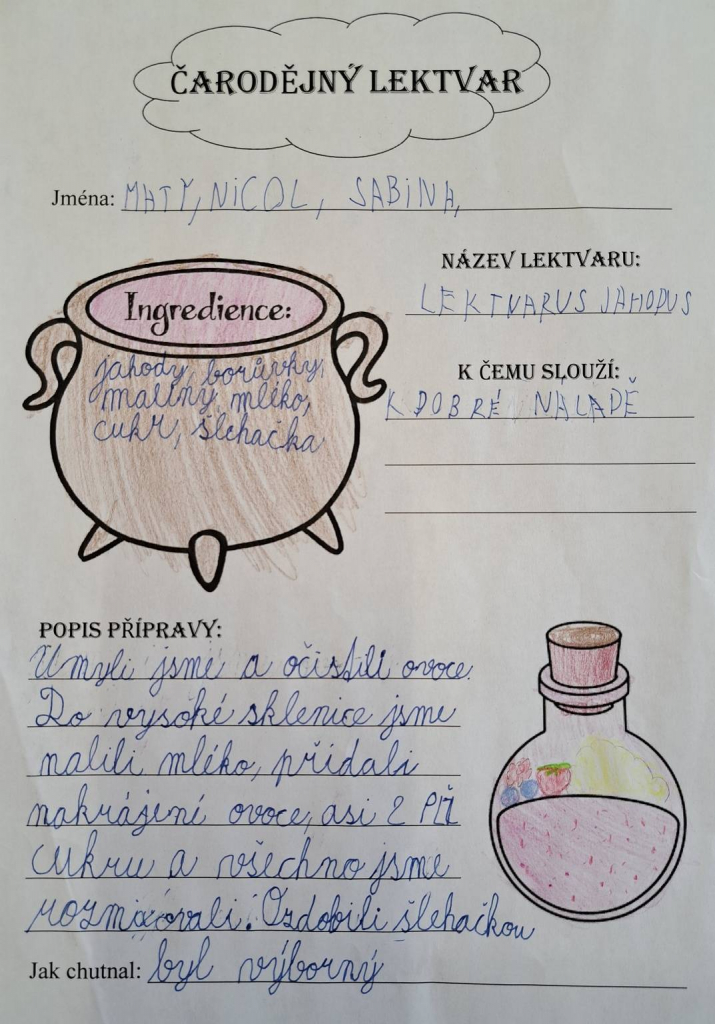 ČARODĚJNÝ LEKTVAR
Jména: MATY, NICOL, SABINA,
NÁZEV LEKTVARU:
LEKTVARUS JAHODUS
K ČEMU SLOUŽÍ:
K DOBRÉ NÁLADĚ
Ingredience:
jahody, borůvky,
maliny, mléko,
cukr, šlehačka
POPIS PŘÍPRAVY:
Umyli jsme a očistili ovoce.
Do vysoké sklenice jsme
nalili mléko, přidali
nakrájené ovoce, asi 2 PL
cukru a všechno jsme
rozmixovali. Ozdobili šlehačkou
Jak chutnal: byl výborný